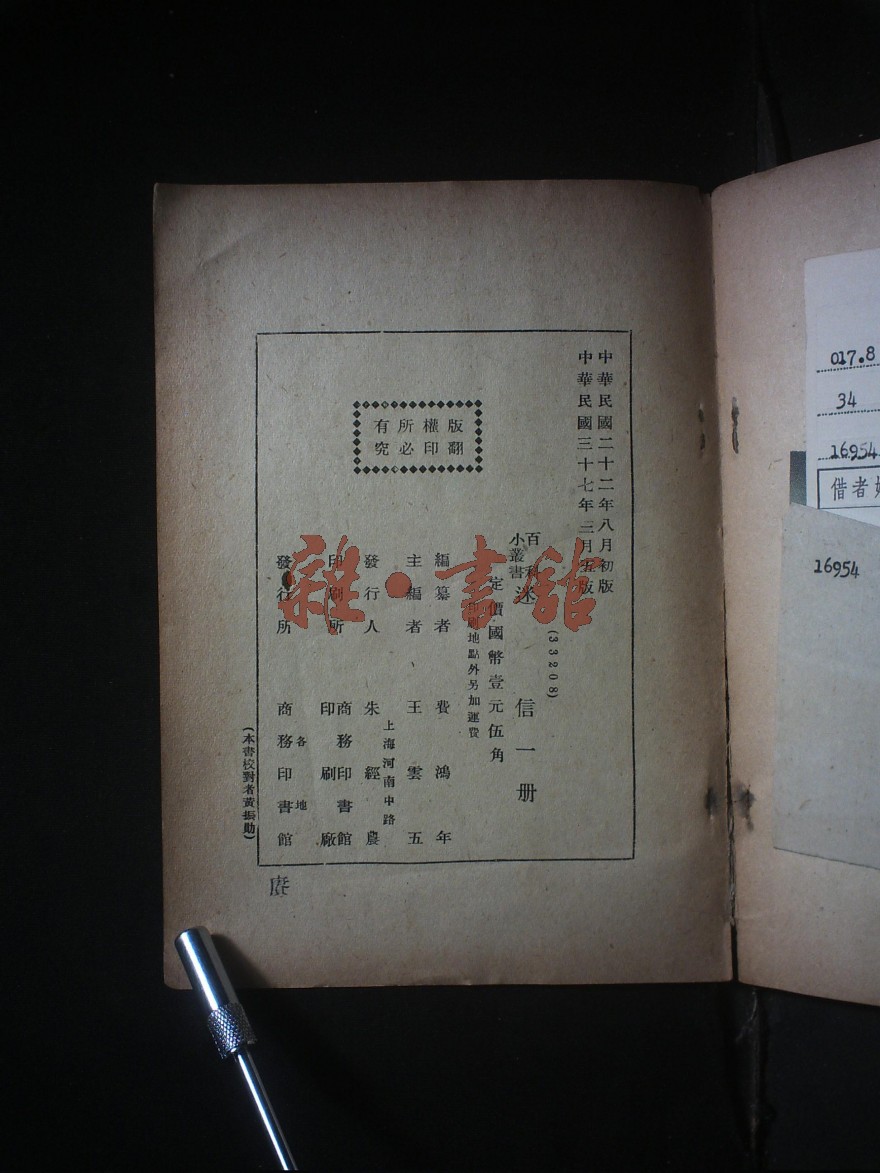 中華民國二十二年八月初版
中華民國三十七年三月五版
(33208)
百科
小叢書
迷信一册
定價國幣壹元伍角
印刷地點外另加運費
編纂者 費鴻年
主編者 王雲五
上海河南中路
發行人 朱經農
印刷所 商務印書館
印刷廠
發行所 各地
商務印書館
(本書校對者黃振勛)
版權所有
翻印必究
雜·書館
017.8
34
16954
借者姓
16954